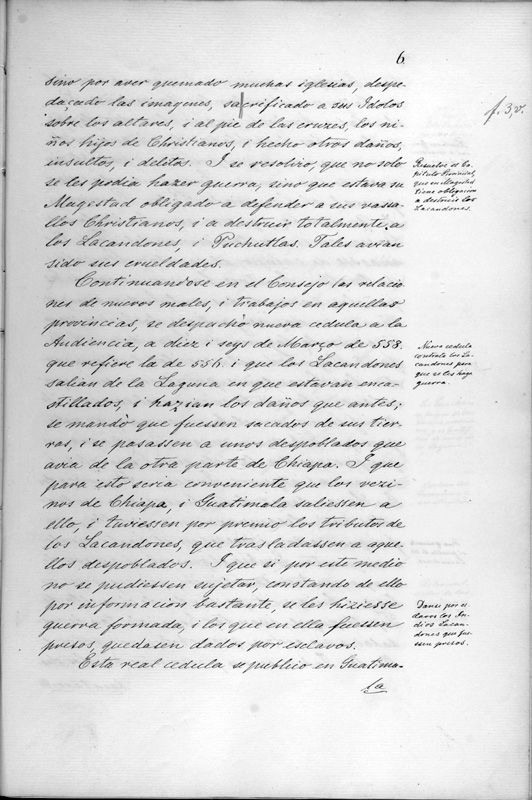 6
sino por aver quemado muchas iglesias, despe-
daçado las imagenes, sacrificado a sus Idolos
sobre los altares, i al pie de las cruzes, los ni-
ños hijos de Christianos, i hecho otros daños,
insultos, i delitos. I se resolvio, que no solo
se les podia hazer guerra, sino que estava su
Magestad obligado a defender a sus vasa-
llos Christianos, i a destruir totalmente a
los Lacandones, i Puchutlas. Tales avian
sido sus crueldades.
Continuandose en el Consejo las relacio-
nes de nuevos males, i trabajos en aquellas
provincias, se despachò nueva cedula a la
Audiencia, a diez i seys de Março de 558.
que refiere la de 556. i que los Lacandones
salian de la Laguna en que estavan enca-
stillados, i hazian los daños que antes;
se mandò que fuessen sacados de sus tier-
ras, i se pasassen a unos despoblados que
avia de la otra parte de Chiapa. I que
para esto seria conveniente que los vezi-
nos de Chiapa, i Guatimala saliessen a
ello, i tuviessen por premio los tributos de
los Lacandones, que trasladassen a aque-
llos despoblados. I que si por este medio
no se pudiessen sujetar, constando de ello
por informacion bastante, se les hiziesse
guerra formada, i los que en ella fuessen
presos, quedasen dados por esclavos.
Esta real cedula se publico en Guatima-
la
f. 3, v.
Resuelve el Ca-
pitulo Provincial,
que su Magestad
tiene obligacion
a destruir los
Lacandones.
Nueva cedula
contra los La-
candones para
que se les haga
guerra.
Danse por es-
clavos los In-
dios Lacan-
dones que fue-
ssen presos.